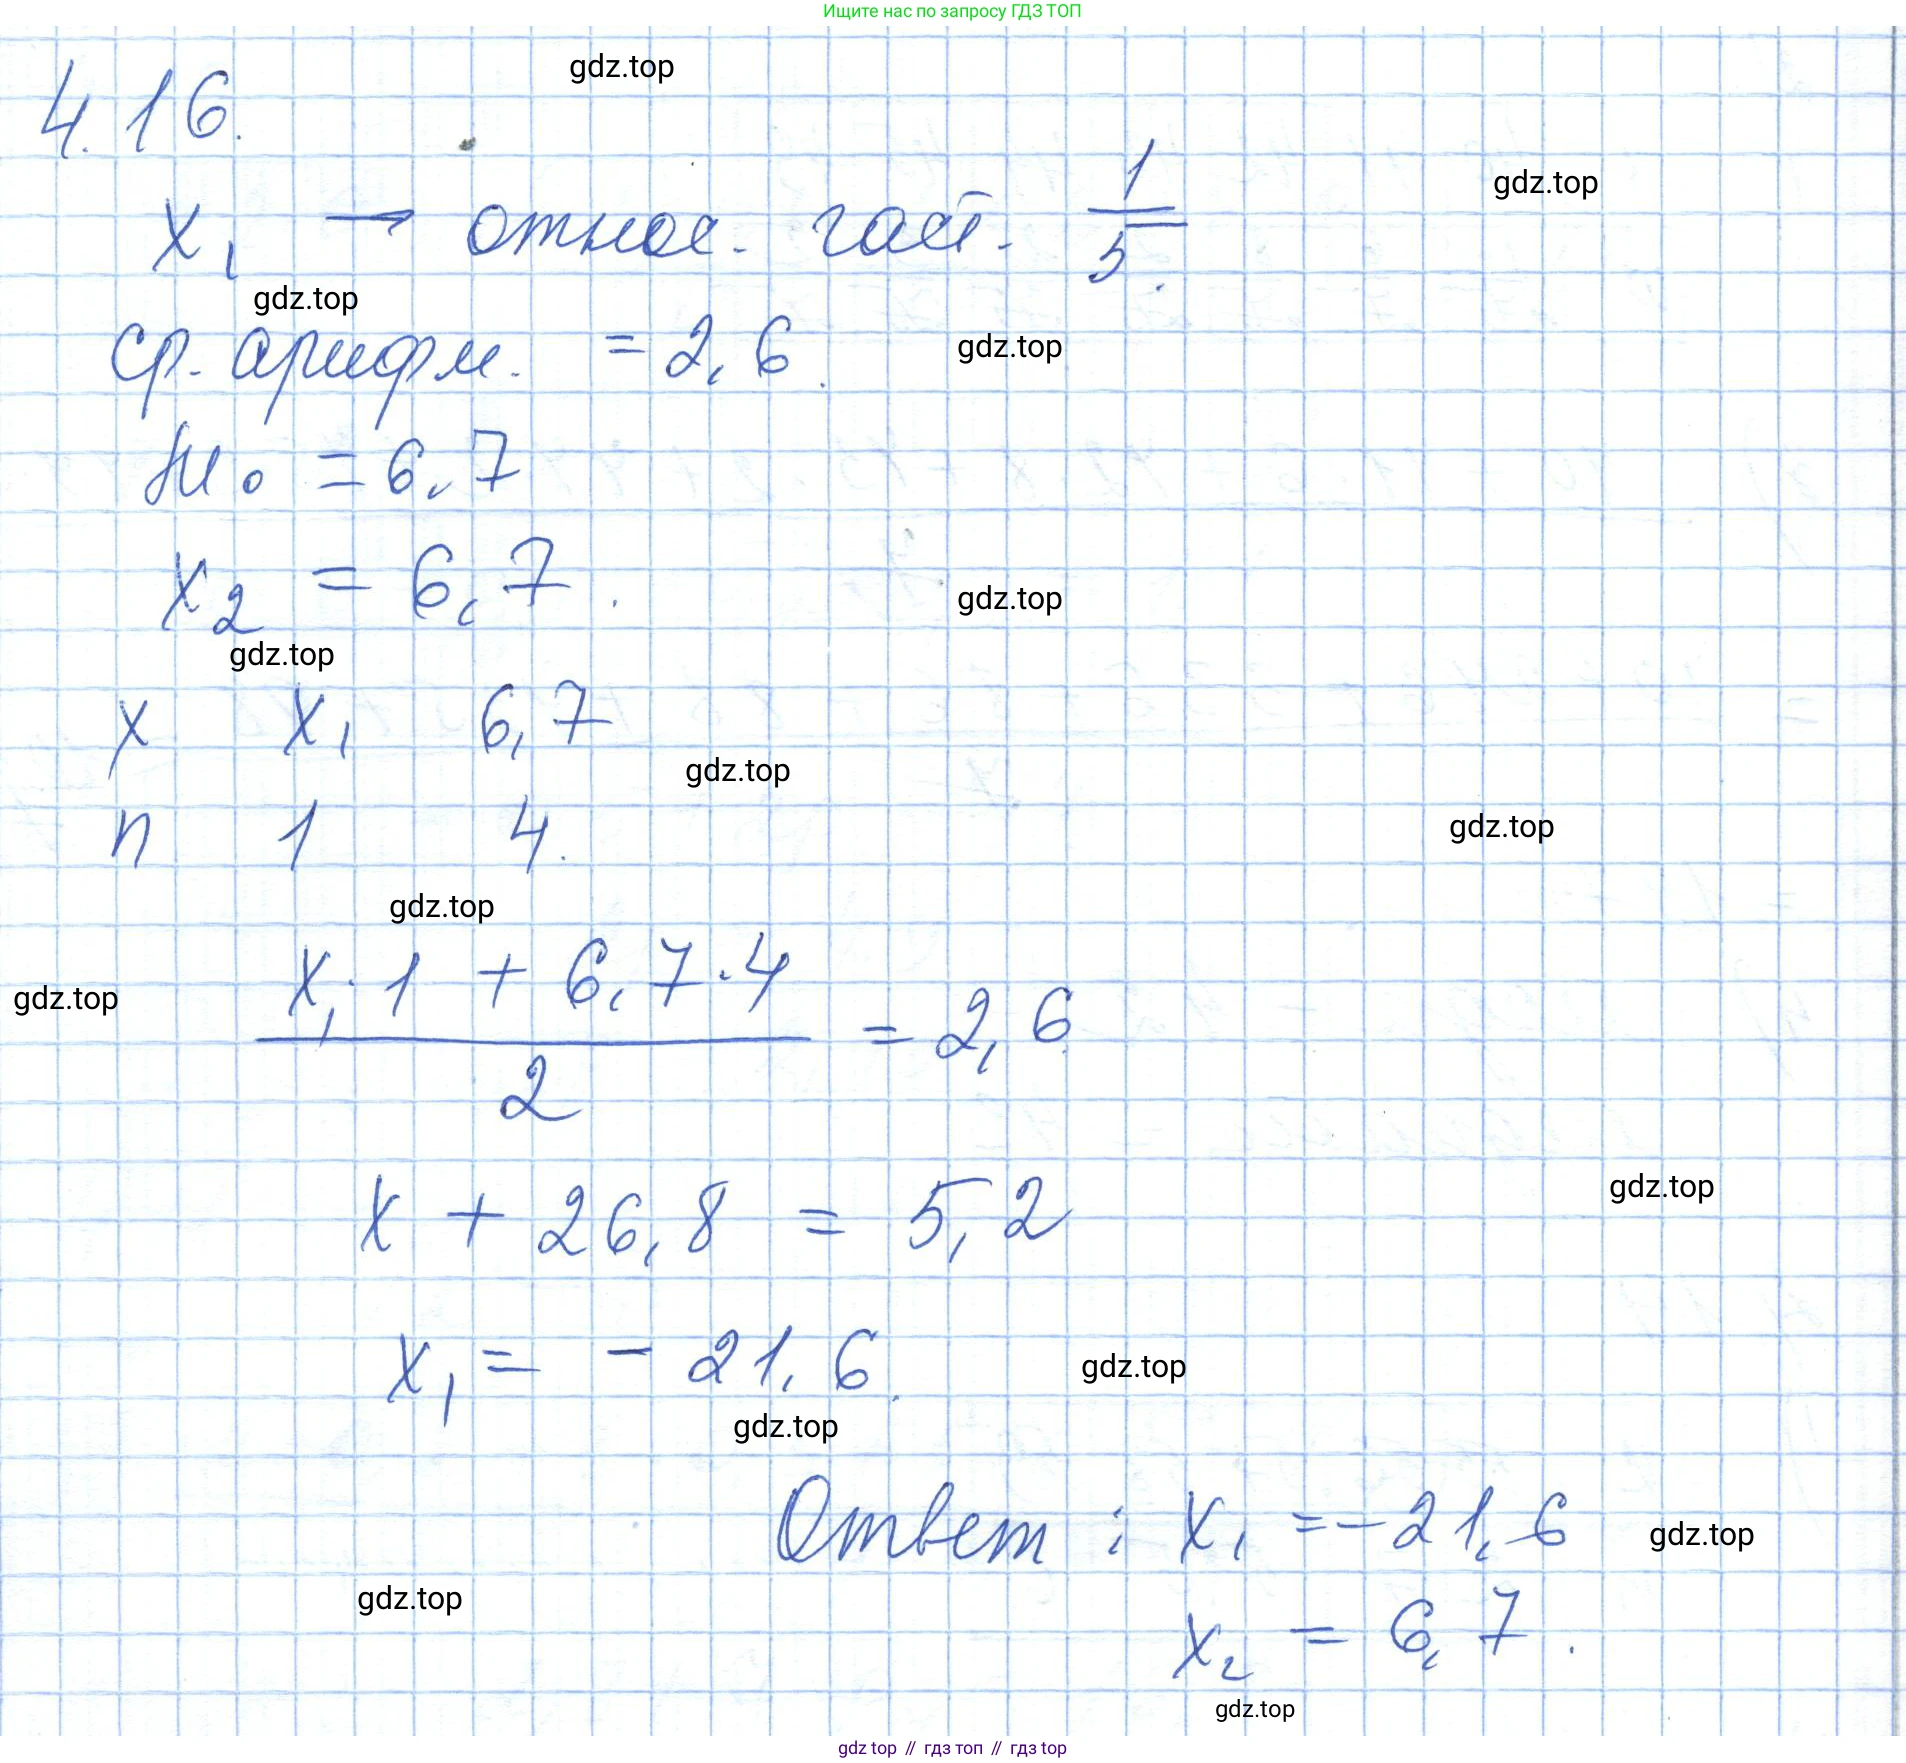 Ищите нас по запросу ГДЗ ТОП
gdz.top
4.16.
x₁ → относ. част. 1/5.
gdz.top
gdz.top
ср. арифм. = 2,6.
gdz.top
M₀ = 6,7
x₂ = 6,7.
gdz.top
gdz.top
x x₁ 6,7
gdz.top
n 1 4.
gdz.top
gdz.top
gdz.top
(x₁·1 + 6,7·4)/2 = 2,6
x + 26,8 = 5,2
gdz.top
x₁ = -21,6.
gdz.top
gdz.top
Ответ: x₁ = -21,6
gdz.top
gdz.top
x₂ = 6,7.
gdz.top
gdz top // гдз топ // гдз top